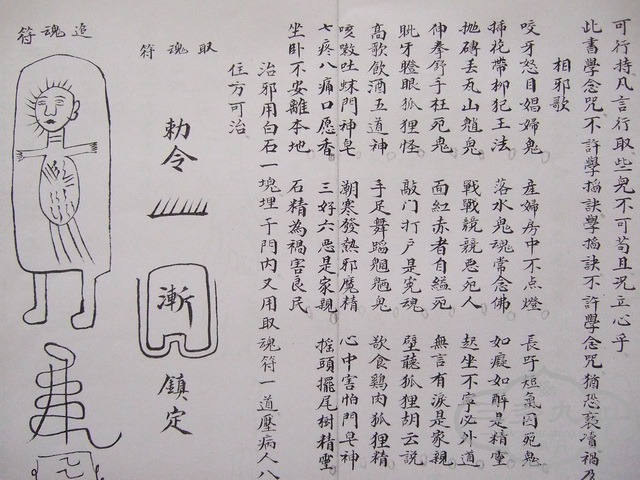 可行持凡言行取些鬼不可苟且況立心乎
此書學念咒不許學搯訣學搯訣不許學念咒猶恐褻凟禍乃
相邪歌
咬牙怒目娼婦鬼 產婦房中不点燈 長吁短氣囚死鬼
掃枕帶柳犯王法 落水鬼魂常念佛 如癡如醉是精靈
拋磚丟瓦山魈鬼 戰戰競競惡死人 起坐不寧必外道
伸拳舒手枉死鬼 面紅赤者自縊死 無言有淚是家親
眺牙瞪眼狐狸怪 敲门打户是冤魂 壁聽狐狸胡云說
高歌飲酒五道神 手足舞蹈魍魎鬼 欲食鷄肉狐狸精
咳嗽吐蛛門神皂 潮寒發熱邪魔精 心中害怕門皂神
七疼八痛口愿香 三好六惡是家親 摇頭擺尾樹精靈
坐卧不安離本地 石精為禍害良民
治邪用白石一塊埋于門內又用取魂符一道壓病人八
住方可治
取魂符
勅令
漸
鎮定
追魂符